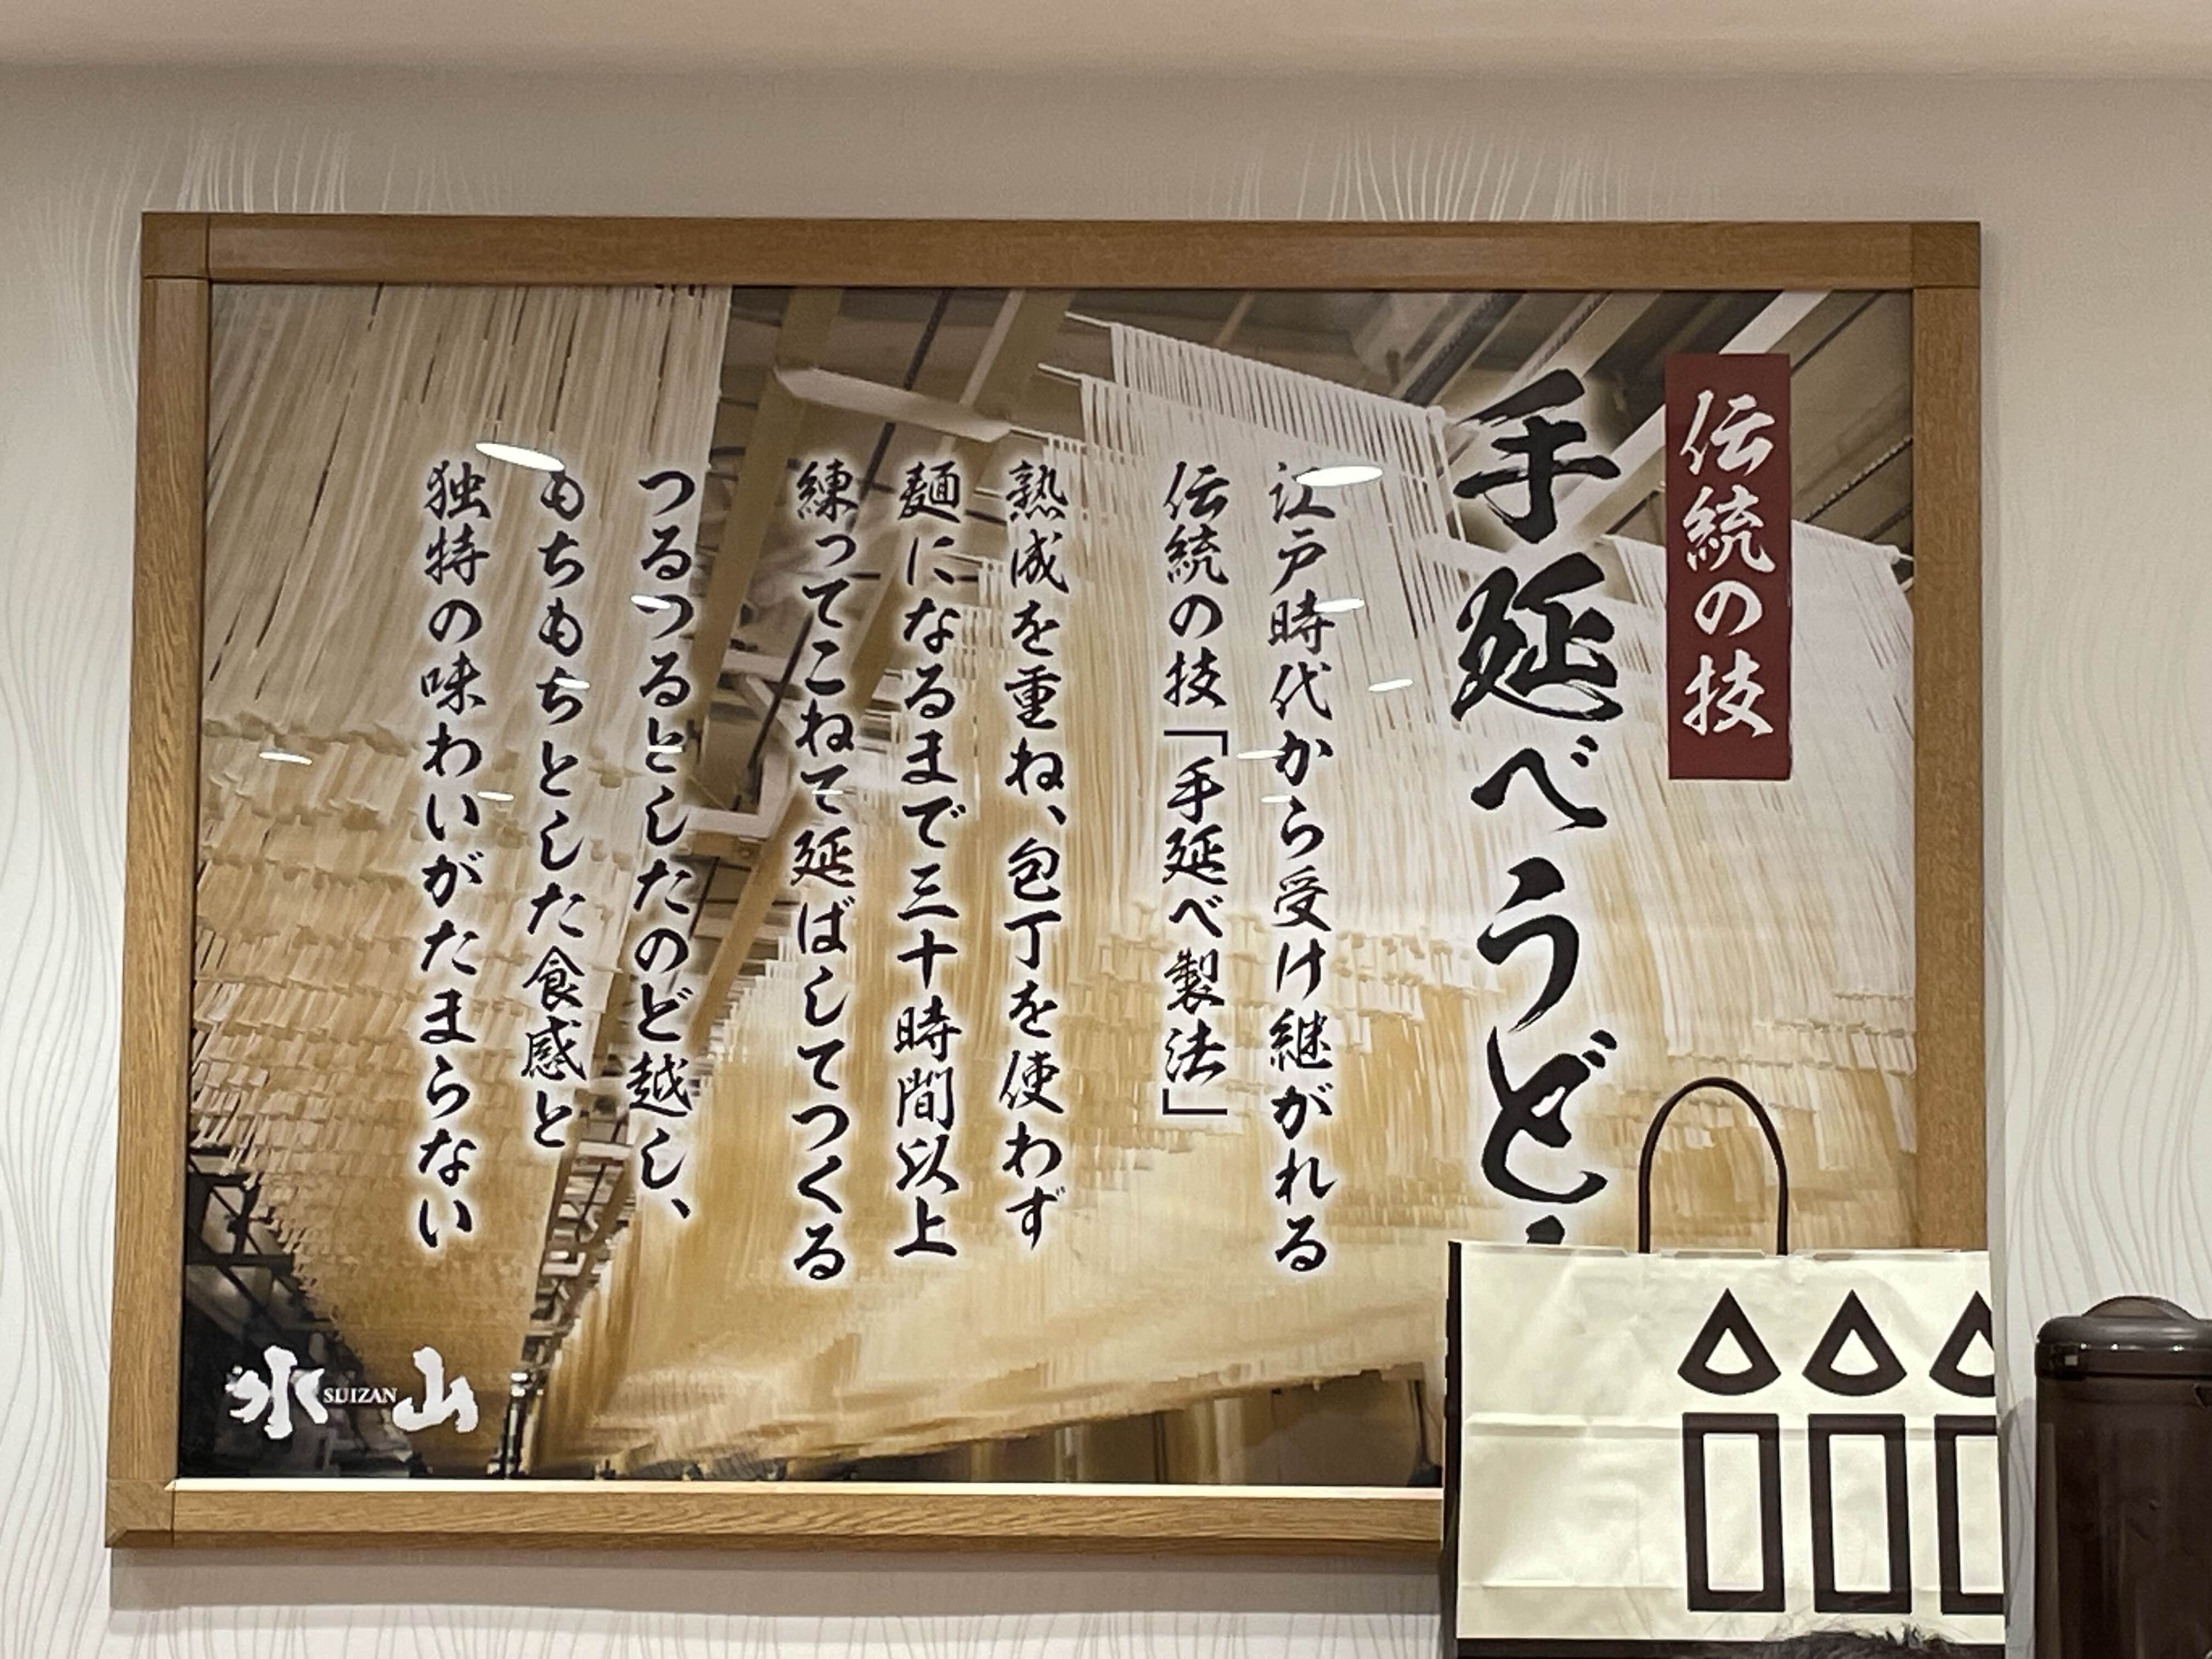 伝統の技
手延べうど
江戸時代から受け継がれる
伝統の技「手延べ製法」
熟成を重ね、包丁を使わず
麺になるまで三十時間以上
練ってこねて延ばしてつくる
つるつるとしたのど越し、
もちもちとした食感と
独特の味わいがたまらない
水SUIZAN山